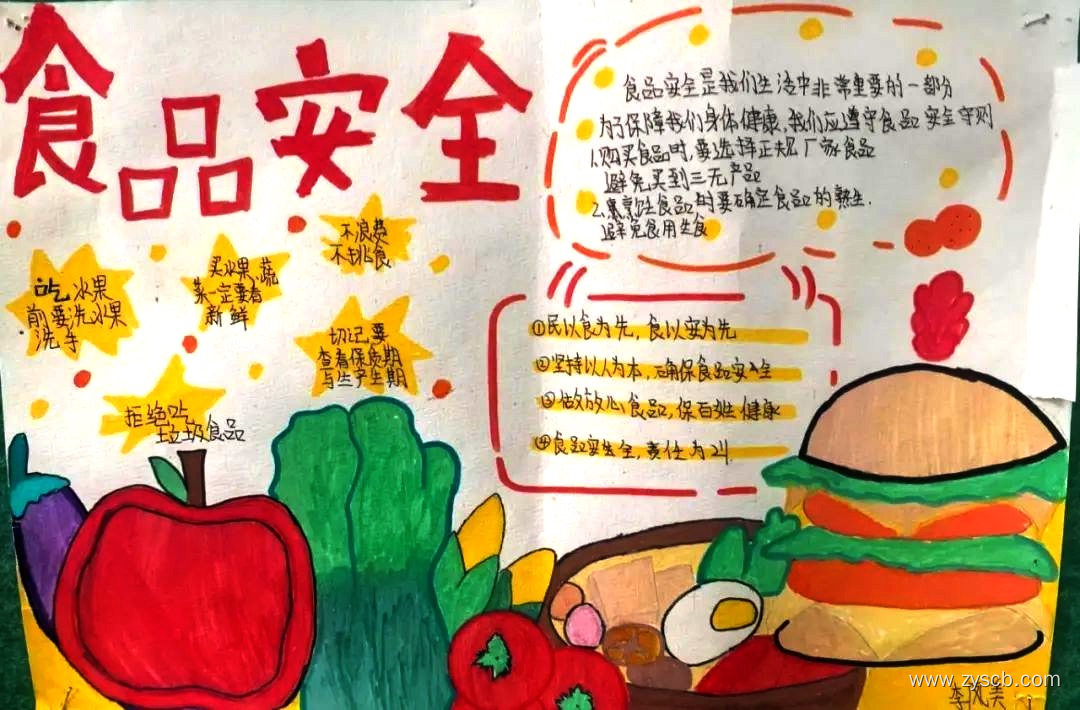 食品安全
食品安全是我们生活中非常重要的一部分
为了保障我们身体健康,我们应遵守食品安全守则
1.购买食品时,要选择正规厂家食品
避免买到三无产品
2.烹饪食品时要确定食品的熟生.
避免食用生食
不浪费
不挑食
买水果,蔬
菜一定要看
新鲜
吃水果
前要洗水果
洗手
切记要
查看保质期
与生产生期
拒绝吃
垃圾食品
①民以食为先,食以安为先
②坚持以人为本,确保食品安全
③做放心食品,保百姓健康
④食品安全,责任为
www.zyscb.com